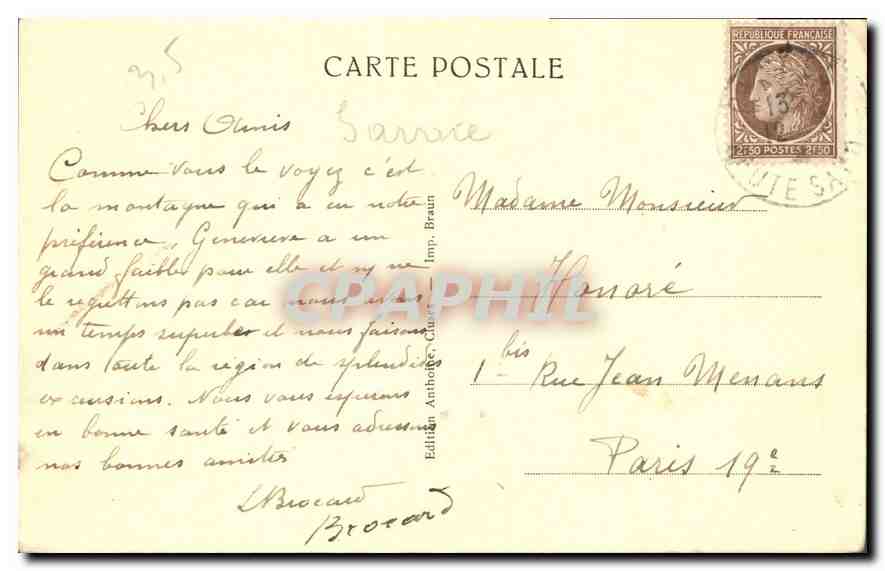 CARTE POSTALE
3,5
Chers Amis
Comme vous le voyez c'est
la montagne qui a eu notre
préférence. Geneviève a un
grand faible pour elle et ny ne
le regrettons pas car nous avons
un temps superbe et nous faisons
dans toute la région de splendides
excursions. Nous vous espérons
en bonne santé et vous adressons
nos bonnes amitiés
LBrocard
Brocard
Edition Anthoine, Cluses — Imp. Braun
REPUBLIQUE FRANÇAISE
2F50 POSTES 2F50
13
UTE SA
Madame Monsieur
Honoré
1 bis Rue Jean Menans
Paris 19e
CPAPHIL